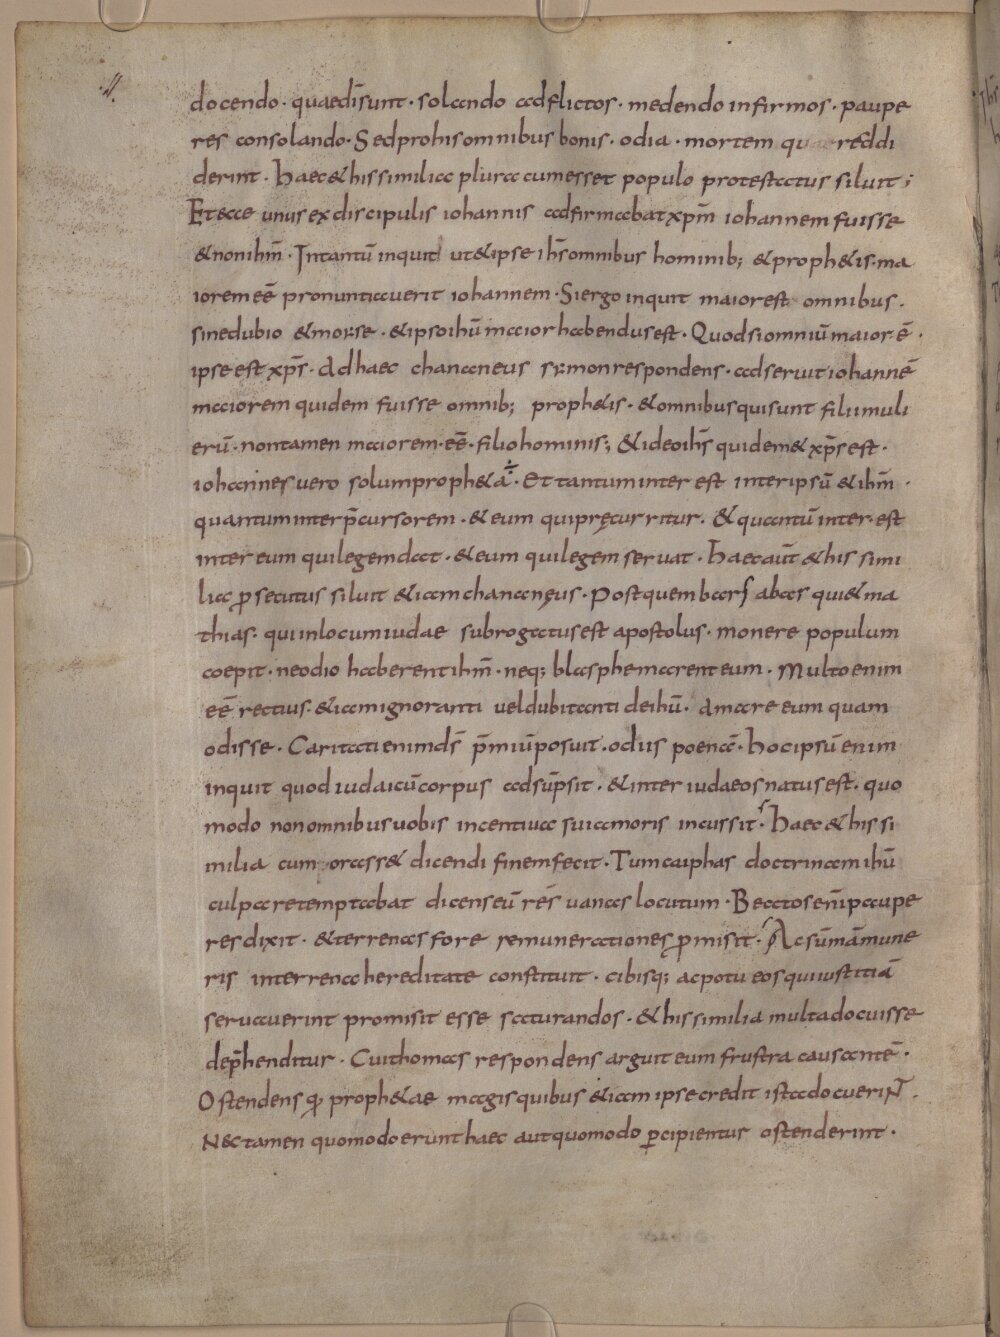 docendo · quae dī sunt · solando adflictos · medendo infirmos · paupe
res consolando · Sed pro his omnibus bonis · odia · mortem reddi
derint · Haec & his similia plura cum esset populo protestatus siluit ;
Et ecce unus ex discipulis iohannis adfirmabat xp̄m iohannem fuisse
& non ihm̄ · Intantū inquit ut & ipse ihs̄ omnibus hominib; & proph&is · ma
iorem eē pronuntiauerit iohannem · Si ergo inquit maior est omnibus ·
sine dubio & mose · & ipso ihū maior habendus est · Quod si omniū maior · ē ·
ipse est xps̄ · Ad haec chananeus symon respondens · adseruit iohannē
maiorem quidem fuisse omnib; proph&is · & omnibus qui sunt filii muli
erū · non tamen maiorem · eē · filio hominis ; & ideo ihs̄ quidem & xps̄ est ·
iohannes uero solum proph&a · ÷ · Et tantum inter est inter ipsū & ihm̄ ·
quantum inter p̄cursorem · & eum qui pręcurritur · & quantū inter · est
inter eum qui legem dat · & eum qui legem seruat · Haec aūt & his simi
lia ꝓsecutus siluit & iam chananęus · Post quem barsabas qui & ma
thias · qui in locum iudae subrogatus est apostolus · monere populum
coepit · ne odio haberent ihm̄ · neq; blasphemarent eum · Multo enim
eē rectius · & iam ignoranti uel dubitanti de ihū · amare eum quam
odisse · Caritati enim ds̄ p̄miū posuit · odiis poena · hoc ipsū enim
inquit quod iudaicū corpus adsūpsit · & inter iudaeos natus est · quo
modo non omnibus uobis incentiua sui amoris incussit · Haec & his si
milia cum orass& dicendi finem fecit · Tum caiphas doctrinam ihū
culpare temptabat dicens eū res uanas locutum · Beatos en̄i paupe
res dixit · & terrenas fore remunerationes ꝓmisit · Ac sūmā mune
ris in terrena hereditate constituit · cibisq; ac potu eos qui iustitiā
seruauerint promisit esse saturandos · & his similia multa docuisse
dep̄henditur · Cui thomas respondens arguit eum frustra causantē ·
Ostendens qꝫ proph&ae magis quibus & iam ipse credit ista docuerint ·
Nec tamen quomodo erunt haec aut quomodo ꝑcipientur ostenderint ·